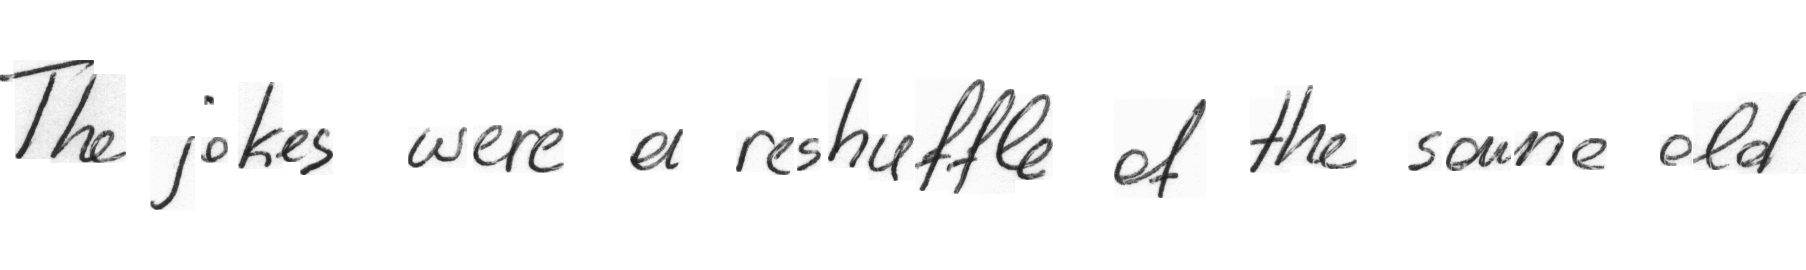 The jokes were a reshuffle of the same old